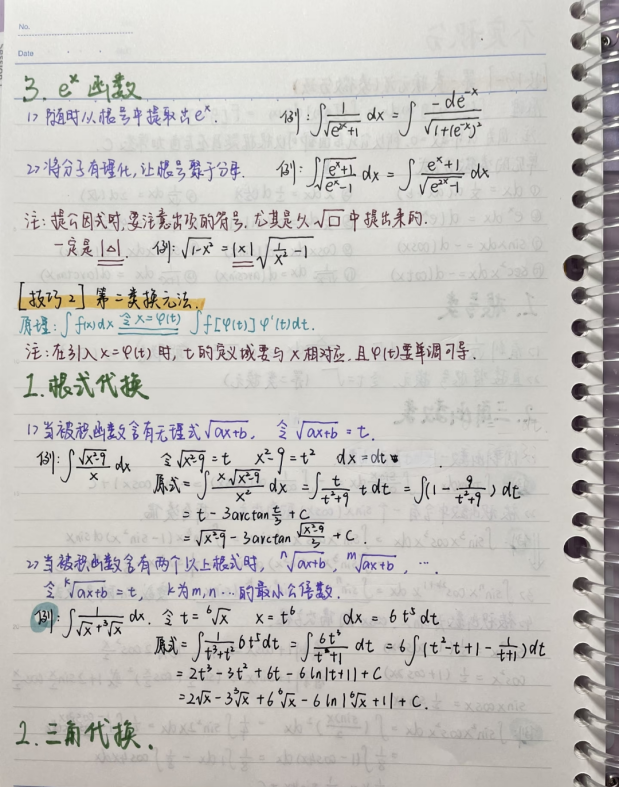 No.
Date
3. eˣ 函数
1> 随时从根号中提取出 eˣ. 例: ∫ 1/√(eˣ+1) dx = ∫ -de⁻ˣ/√(1+(e⁻ˣ)²)
2> 将分子有理化, 让根号聚于分母. 例: ∫ √((eˣ+1)/(eˣ-1)) dx = ∫ (eˣ+1)/√(e²ˣ-1) dx
注: 提公因式时, 要注意出项的符号, 尤其是从 √□ 中提出来的.
一定是 |△|. 例: √(1-x²) = |x| √(1/x² - 1)
[技巧2] 第二类换元法.
原理: ∫ f(x) dx 令 x=φ(t) ∫ f[φ(t)] φ'(t) dt.
注: 在引入 x=φ(t) 时, t 的定义域要与 x 相对应. 且 φ(t) 要单调可导.
1. 根式代换
1> 当被积函数含有无理式 √(ax+b), 令 √(ax+b) = t.
例: ∫ √(x²-9)/x dx 令 √(x²-9) = t x²-9 = t² dx = dt
原式 = ∫ x√(x²-9)/x² dx = ∫ t/(t²+9) · t dt = ∫ (1 - 9/(t²+9)) dt
= t - 3arctan t/3 + C
= √(x²-9) - 3arctan √(x²-9)/3 + C.
2> 当被积函数含有两个以上根式时, ⁿ√(ax+b), ᵐ√(ax+b), ….
令 ᵏ√(ax+b) = t, k为 m, n … 的最小公倍数.
例: ∫ 1/(√x + ³√x) dx. 令 t = ⁶√x x = t⁶ dx = 6t⁵ dt
原式 = ∫ 1/(t³+t²) 6t⁵ dt = ∫ 6t³/(t+1) dt = 6∫ (t²-t+1 - 1/(t+1)) dt
= 2t³ - 3t² + 6t - 6ln|t+1| + C
= 2√x - 3³√x + 6⁶√x - 6ln|⁶√x+1| + C.
2. 三角代换.